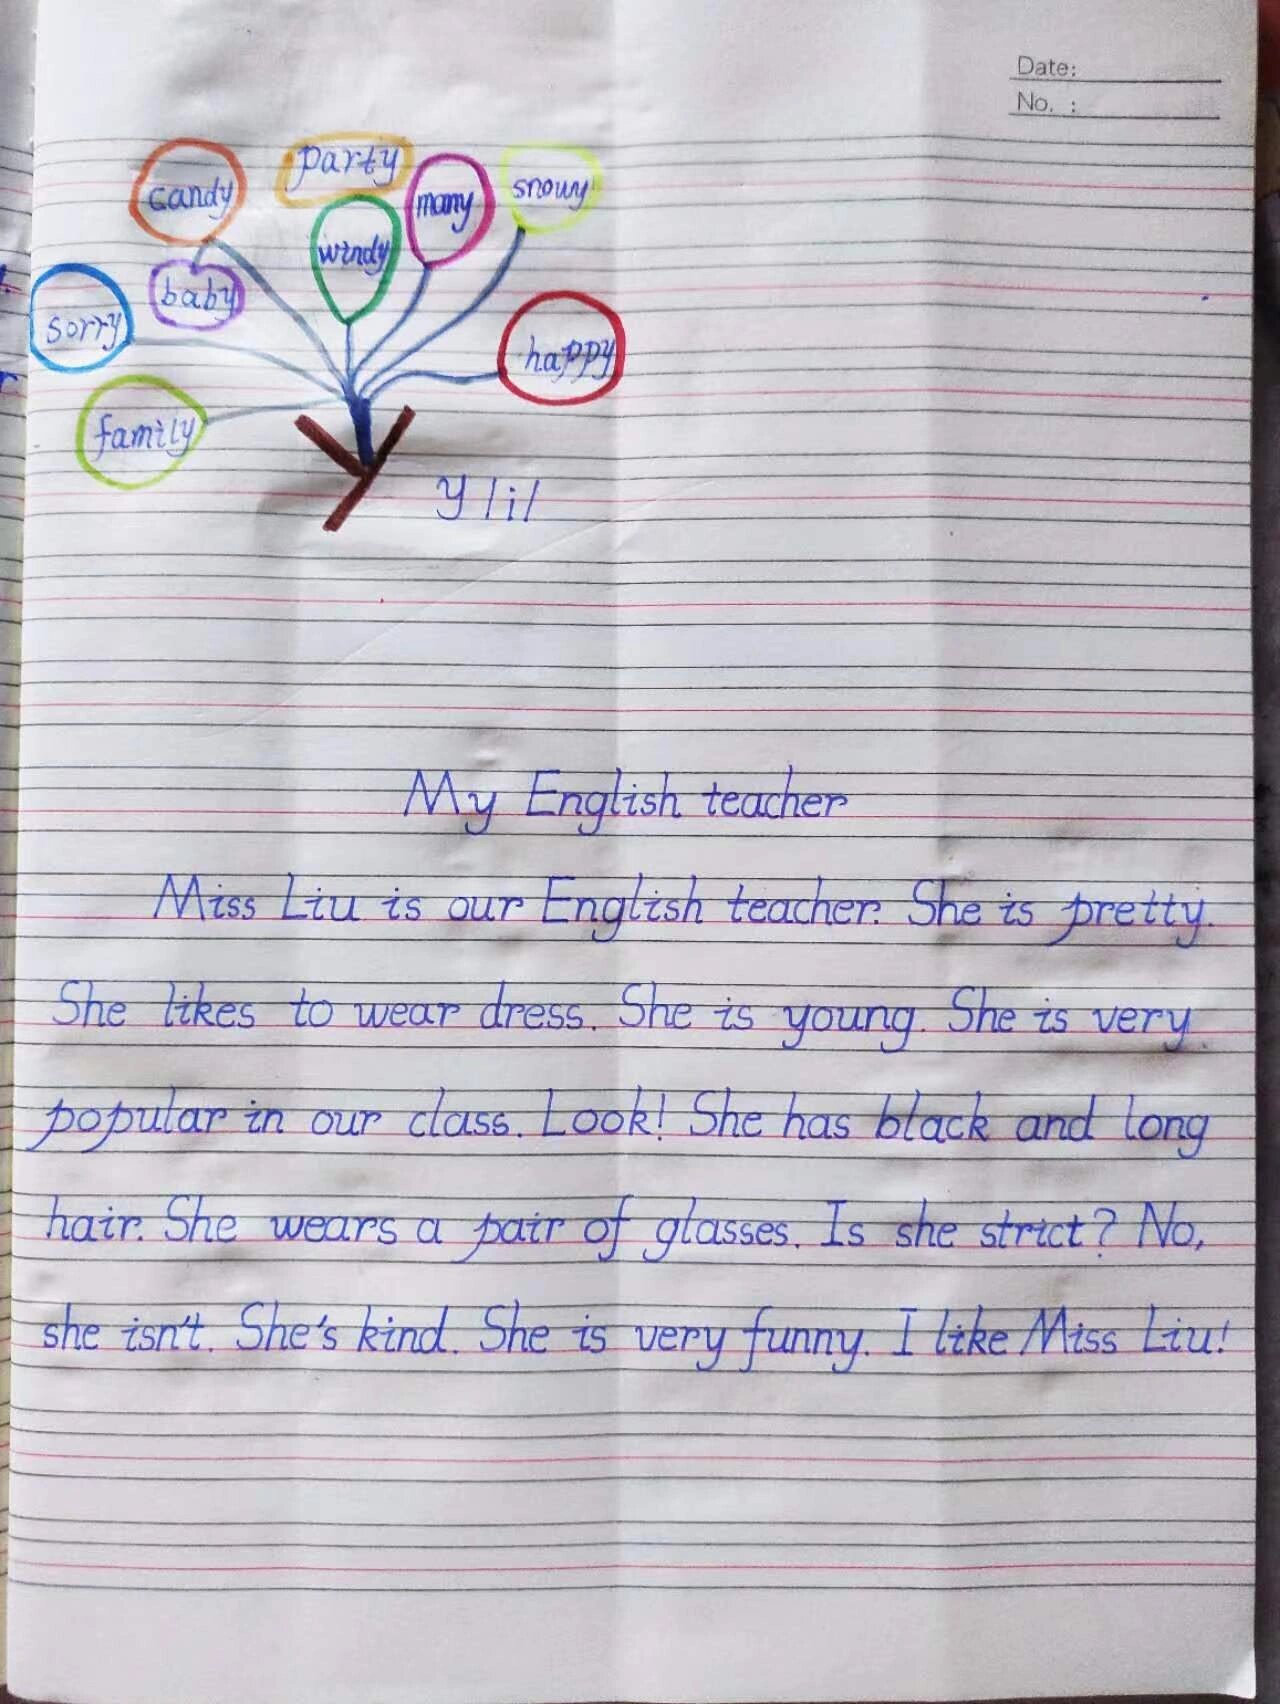 Date:
No. :
party
candy
many
snowy
windy
baby
sorry
happy
family
y /i/
My English teacher
Miss Liu is our English teacher. She is pretty.
She likes to wear dress. She is young. She is very
popular in our class. Look! She has black and long
hair. She wears a pair of glasses. Is she strict? No,
she isn't. She's kind. She is very funny. I like Miss Liu!